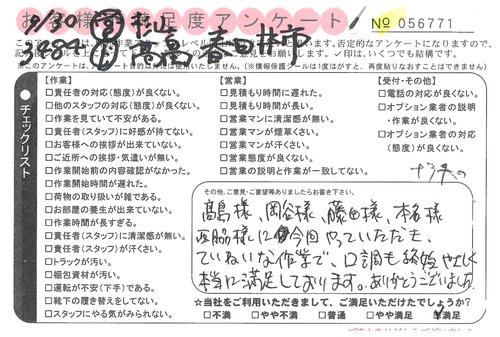 お客様満足度アンケート
№ 056771
9/30
春日井市
チェックリスト
【作業】
□責任者の対応(態度)が良くない。
□他のスタッフの対応(態度)が良くない。
□作業を見ていて不安がある。
□責任者(スタッフ)に好感が持てない。
□お客様への挨拶が出来ていない。
□ご近所への挨拶・気遣いが無い。
□作業開始前の内容確認がなかった。
□作業開始時間が遅れた。
□荷物の取り扱いが雑である。
□お部屋の養生が出来ていない。
□作業時間が長すぎる。
□責任者(スタッフ)に清潔感が無い。
□責任者(スタッフ)が汗くさい。
□トラックが汚い。
□梱包資材が汚い。
□運転が不安(下手)である。
□靴下の履き替えをしてない。
□スタッフにやる気がみられない。
【営業】
□見積もり時間に遅れた。
□見積もり時間が長い。
□営業マンに清潔感が無い。
□営業マンが煙草くさい。
□営業マンが汗くさい。
□営業態度が良くない。
□営業の説明と作業が一致してない。
【受付・その他】
□電話の対応が良くない。
□オプション業者の説明
・作業が良くない。
□オプション業者の対応
(態度)が良くない。
その他、ご意見・ご要望等ありましたらお書き下さい。
髙島様、岡谷様、藤田様、本名様
西脇様に今回やっていただき、
ていねいな作業で、口調も終始やさしく
本当に満足しております。ありがとうございました。
☆当社をご利用いただきまして、ご満足いただけたでしょうか?
□不満 □やや不満 □普通 □やや満足 □満足